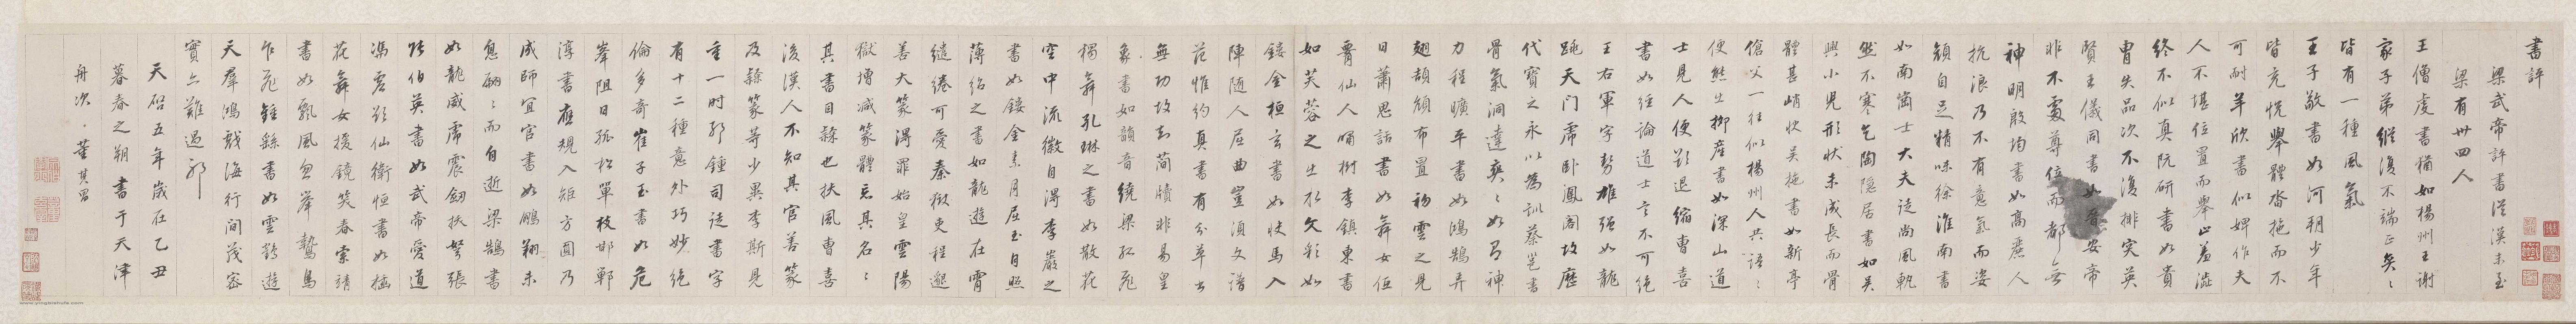 書評
梁武帝評書從漢末至
梁有卅四人
王僧虔書猶如楊州王謝
家子弟縱復不端正奕ゝ
皆有一種風氣
王子敬書如河朔少年
皆充悅舉體沓拖而不
可耐羊欣書似婢作夫
人不堪位置而舉止羞澁
終不似真阮研書如貴
冑失品次不復排突英
賢王儀同書如晉安帝
非不處尊位而都無
神明殷均書如高麗人
抗浪乃不有意氣而姿
顏自足精味徐淮南書
如南崗士大夫徒尚風軌
然不寒乞陶隱居書如吳
興小兒形狀未成長而骨
體甚峭快吳施書如新亭
傖父一往似楊州人共語ゝ
便態出柳產書如深山道
士見人便欲退縮曹喜
書如經論道士言不可絕
王右軍字勢雄強如龍
跳天门虎卧鳳閣故歷
代寶之永以為訓蔡邕書
骨氣洞達爽ゝ如有神
力程曠平書如鴻鵠弄
翅頡頏布置初雲之見
日蕭思話書如舞女低
腰仙人嘯樹李鎮東書
如芙蓉之出水文彩如
鏤金桓玄書如快馬入
陣隨人屈曲豈須文譜
范惟約真書有分草書
無功故知簡牘非易皇
象書如韻音繞梁孤飛
獨舞孔琳之書如散花
空中流徽自得李巖之
書如鏤金素月屈玉自照
薄紹之書如龍遊在霄
繾綣可愛秦獄吏程邈
善大篆得罪始皇雲陽
獄增減篆體去其名ゝ
其書曰隸也扶風曹喜
後漢人不知其官善篆
及隸篆等少異李斯見
重一時邪鍾司徒書字
有十二種意外巧妙絕
倫多奇崔子玉書如危
峯阻日孤松單枝邯鄲
淳書應規入矩方圓乃
成師宜官書如鵬翔未
息翩ゝ而自逝梁鵠書
如龍威虎震劍拔弩張
張伯英書如武帝愛道
憑虛欲仙衛恒書如插
花舞女援鏡笑春索靖
書如飄風忽舉鷙鳥
乍飛鍾繇書如雲鵠遊
天羣鴻戲海行間茂密
實亦難過耶
天啟五年歲在乙丑
暮春之朔書于天津
舟次董其昌